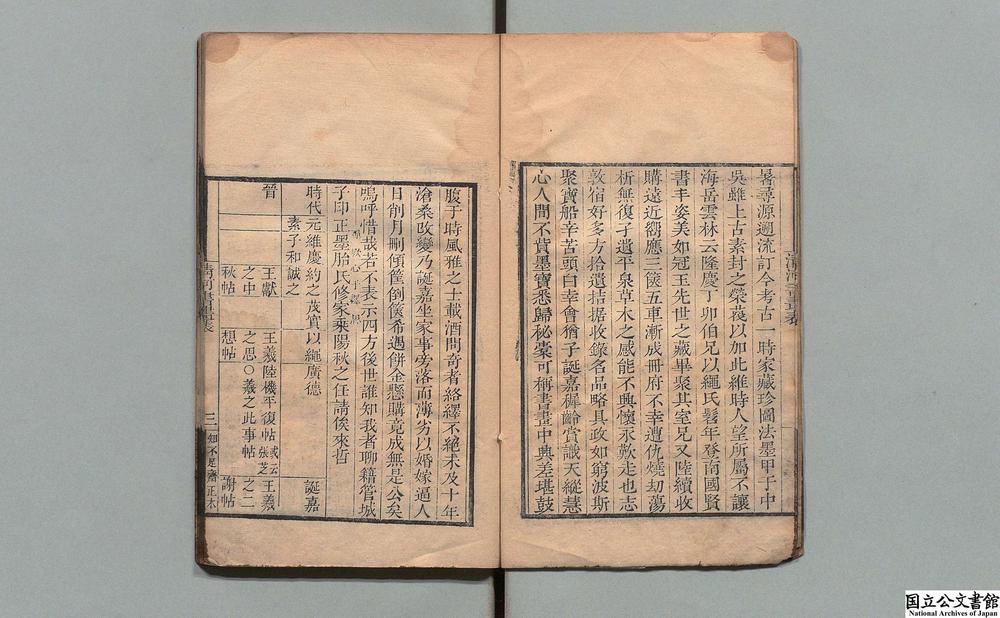 暑尋源遡流訂今考古一時家藏珍圖法墨甲子中
吳雖上古素封之榮蔑以加此維時人望所屬不讓
海岳雲林云隆慶丁卯伯兄以繩氏髫年登南國賢
書丰姿美如冠玉先世之藏畢聚其室兄又陸續收
購遠近嚮應二篋五車漸成冊府不幸遭仇燒刧蕩
析無復孑遺平泉草木之感能不興懷永歎走也志
敦宿好多方拾遺拮据收錄名品略具政如窮波斯
聚寶船辛苦頭白幸會猶子誕嘉穉齡賞識天縱慧
心人間不貲墨寶悉歸秘橐可稱書畫中典差堪鼓
腹于時風雅之士載酒問奇者絡繹不絶未及十年
滄桑改變乃誕嘉坐家事旁落而溥劣以婚嫁逼人
日削月刪傾筐倒篋希遇倂金懸購竟成無是公矣
嗚呼惜哉若不表示四方後世誰知我者聊藉管城
子印正墨胎氏修家乘陽秋之任請俟來哲
時代 元維慶約之茂實以繩廣德 誕嘉
素子和誠之
晉 王獻 王羲陸機平復帖或云張芝王羲
之中 之思○羲之此事帖 之二
秋帖 想帖 謝帖
清河書畫表 三 知不足齋正本
國立公文書館
National Archives of Japan